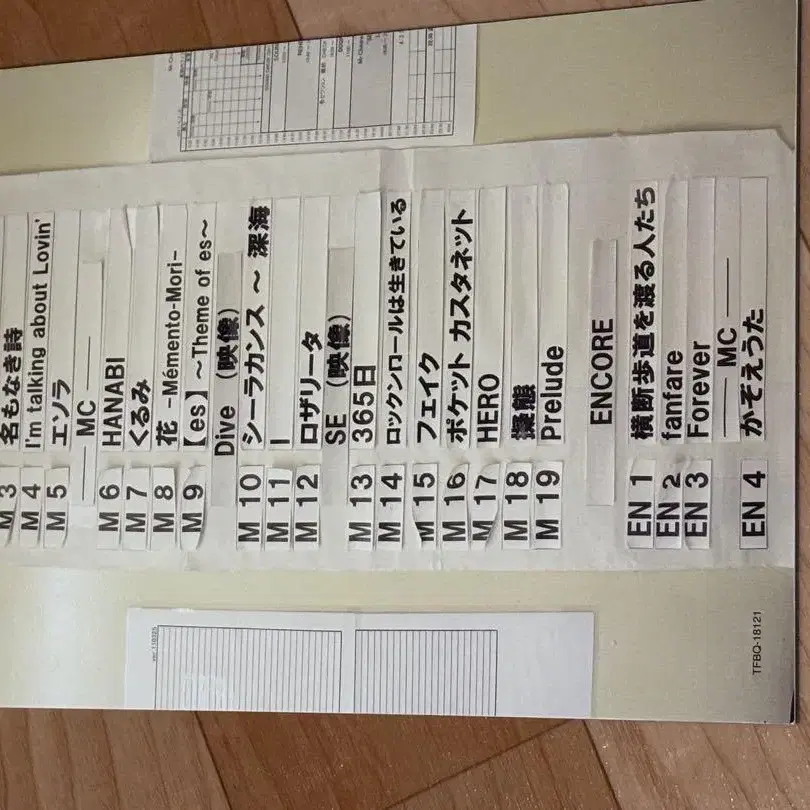 M 3 名もなき詩
M 4 I'm talking about Lovin'
M 5 エソラ
MC
M 6 HANABI
M 7 くるみ
M 8 花 -Mémento-Mori-
M 9 【es】 ~Theme of es~
Dive (映像)
M 10 シーラカンス ~ 深海
M 11 I
M 12 ロザリータ
SE (映像)
M 13 365日
M 14 ロックンロールは生きている
M 15 フェイク
M 16 ポケット カスタネット
M 17 HERO
M 18 擬態
M 19 Prelude
ENCORE
EN 1 横断歩道を渡る人たち
EN 2 fanfare
EN 3 Forever
MC
EN 4 かぞえうた
TFBQ-18121